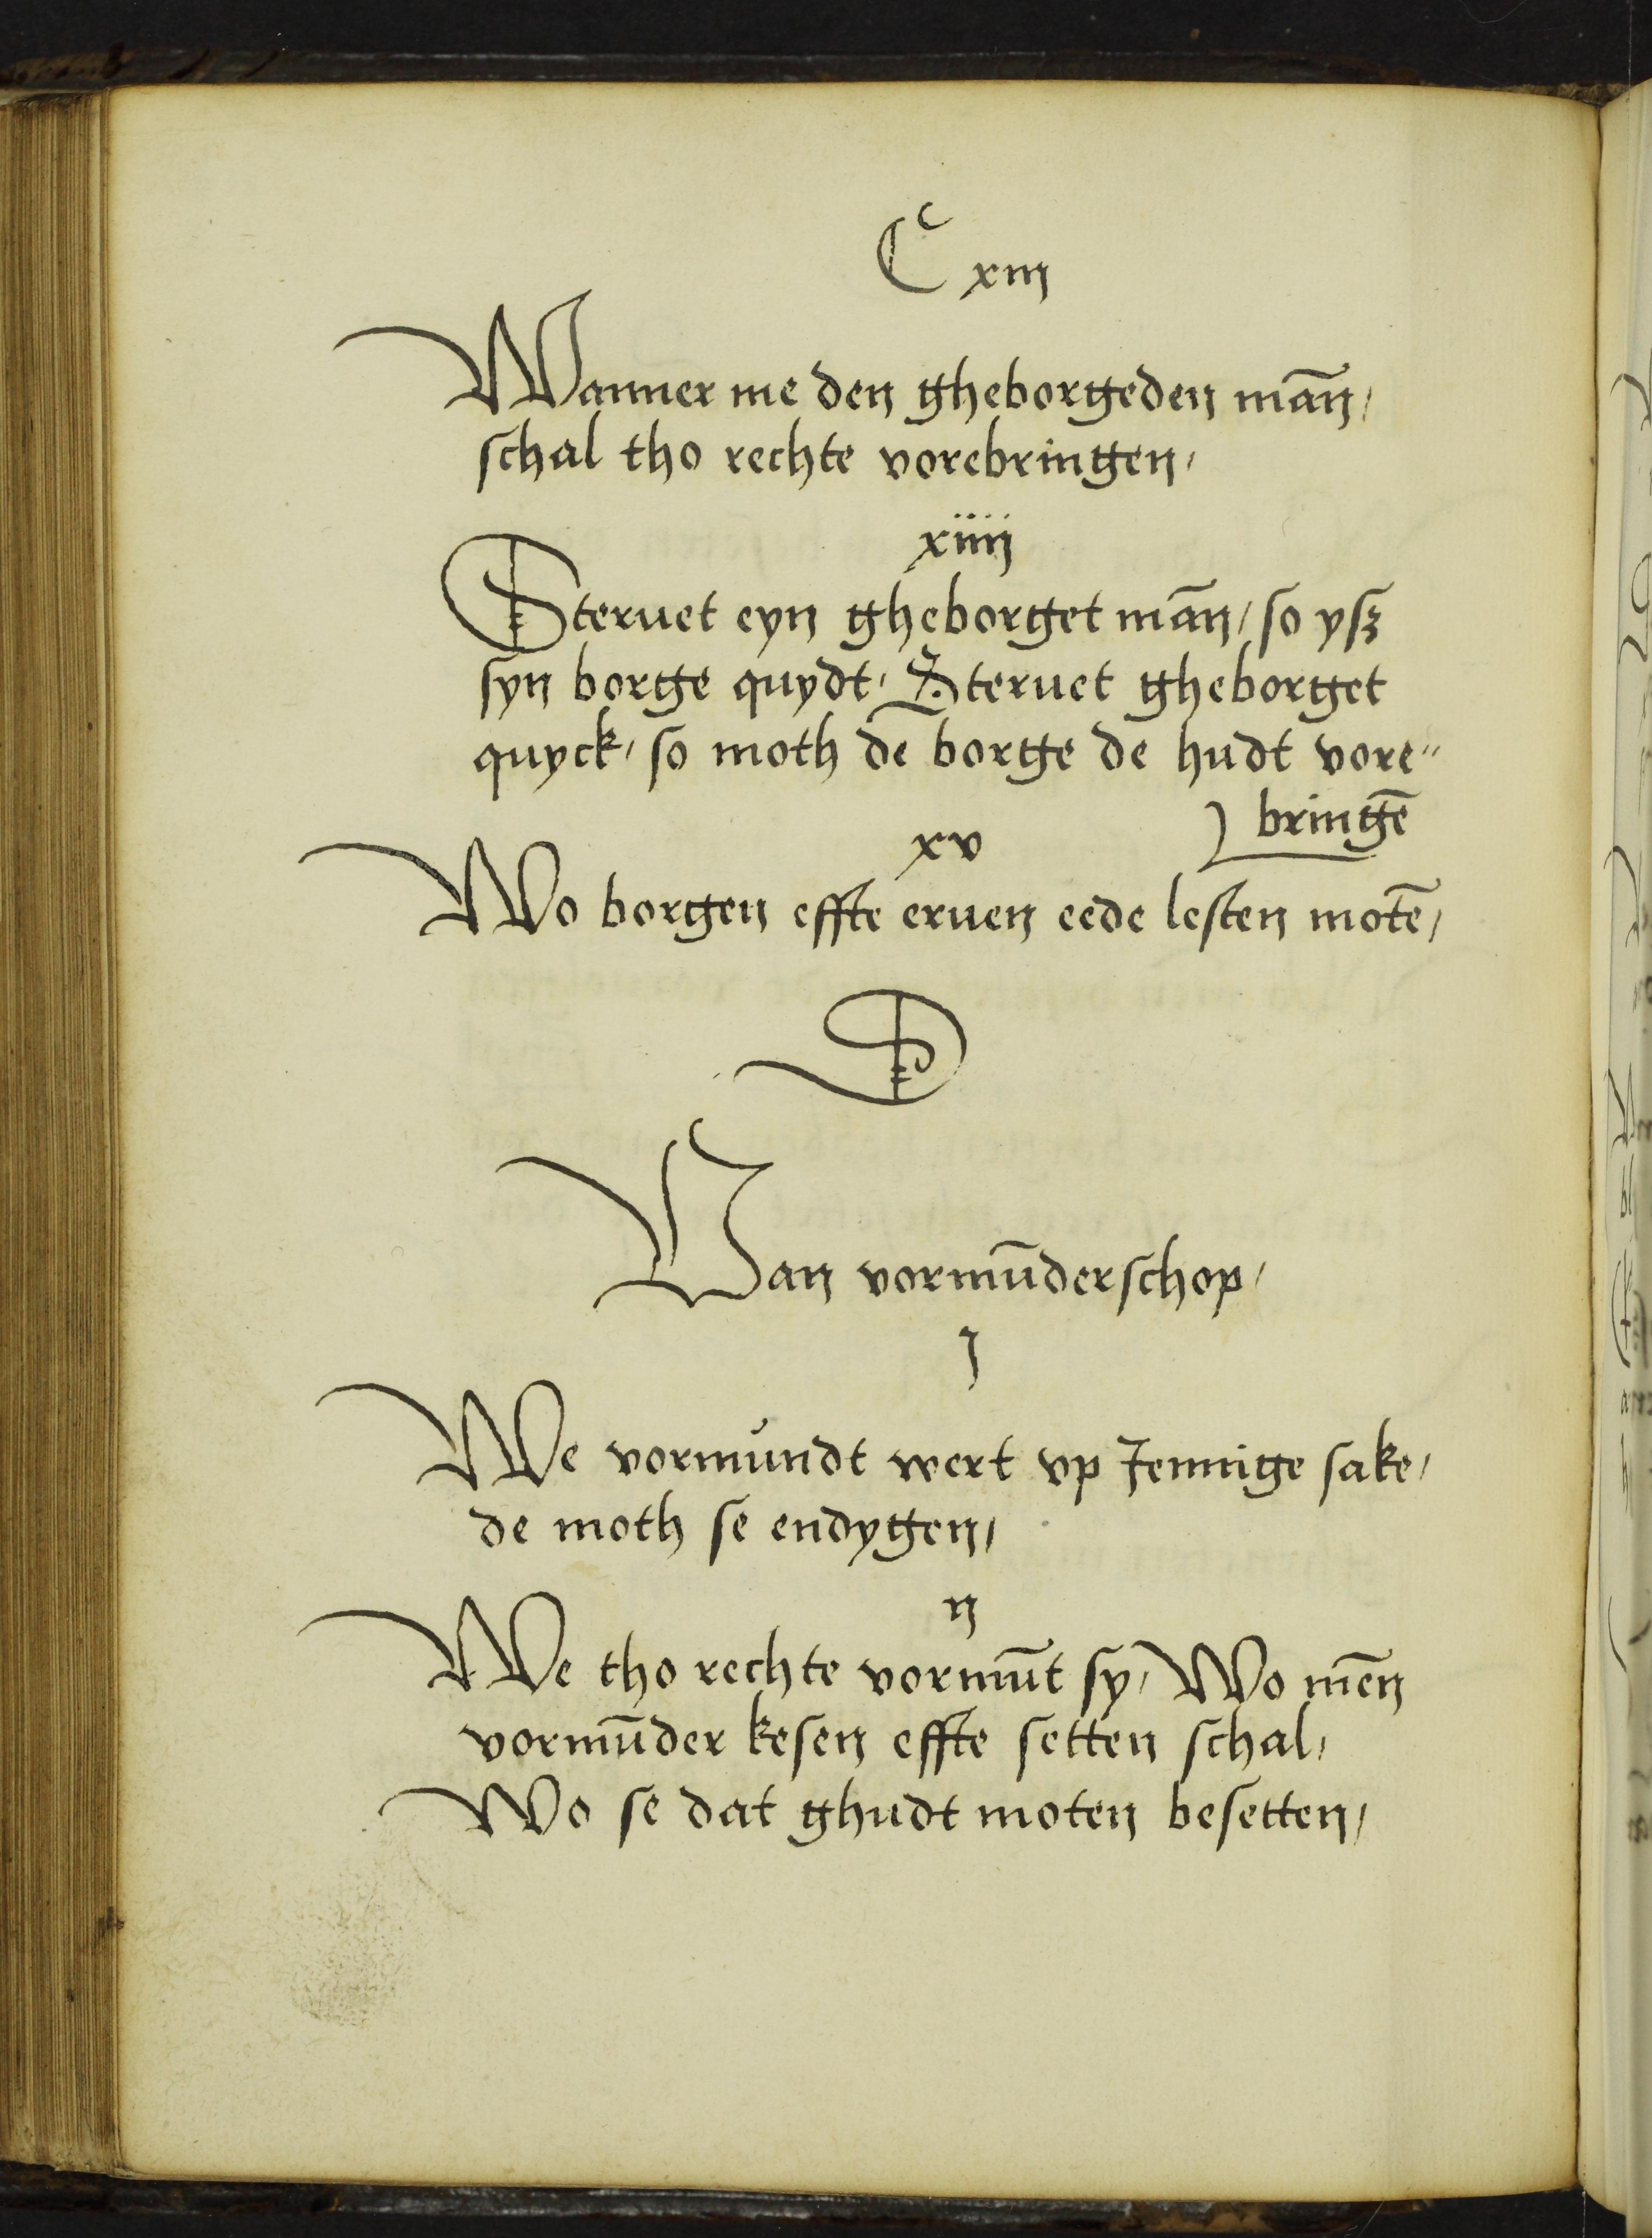 C xiij
Wanner me den gheborgeden mān /
schal tho rechte vorebringen /
xiiij
Steruet eyn gheborget mān / so ysz
syn borge quydt / Steruet gheborget
quyck / so moth de borge de hudt vore //
bringē
xv
Wo borgen effte eruen eede lesten motē /
Van vormūderschop /
j
We vormundt wert vp Jennige sake /
de moth se endygen /
ij
We tho rechte vormūt sy / Wo mēn
vormūder kesen effte setten schal /
Wo se dat ghudt moten besetten /